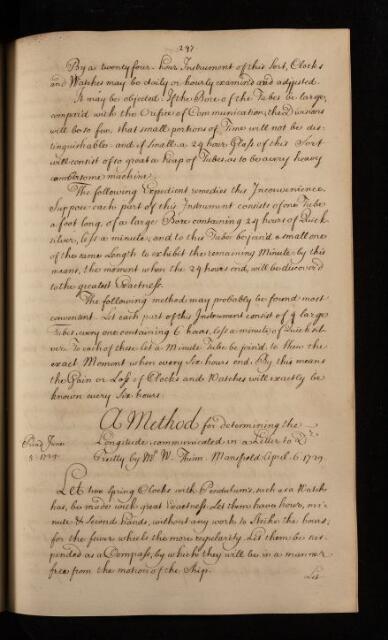 297
By a twenty four-hour Instrument of this Sort, Clocks
and Watches may be daily or hourly examin'd and adjusted.
It may be objected: If the Bore of the Tubes be large,
compar'd with the Orifice of Communication, the Divisions
will be so few that small portions of Time will not be dis-
tinguishable. and if small a 24 hour Glass of this Sort
will consist of so great a heap of Tubes, as to be a very heavy
cumbersome machine.
The following Expedient remedies this Inconvenience.
Suppose each part of this Instrument consists of one Tube
a foot long, of a large Bore containing 24 hours of Quick-
silver, less a minute; and to this Tube be join'd a small one
of the same Length to exhibit the remaining Minute. by this
means, the moment when the 24 hours end, will be discover'd
to the greatest Exactness.
The following method may probably be found most
convenient. Let each part of this Instrument consist of 4 large
Tubes, every one containing 6 hours, less a minute, of Quicksil-
ver. To each of these let a Minute Tube be join'd, to shew the
exact Moment when every Six hours end. By this means
the Gain or Loss of Clocks and Watches will exactly be
known every Six hours.
A Method for determining the
Longitude, communicated in a Letter to Dr.
by Mr. W. Mansfield April 6. 1729.
Read June
5. 1729.
Let two Spring Clocks with Pendulums, such as a Watch
has, be made with great Exactness. Let them have hour, mi-
nute & Seconds hands, without any work to Strike the hours;
for the fewer wheels the more regularity. Let them be sus-
pended as a Compass, by which they will be in a manner
free from the motion of the Ship.
Let